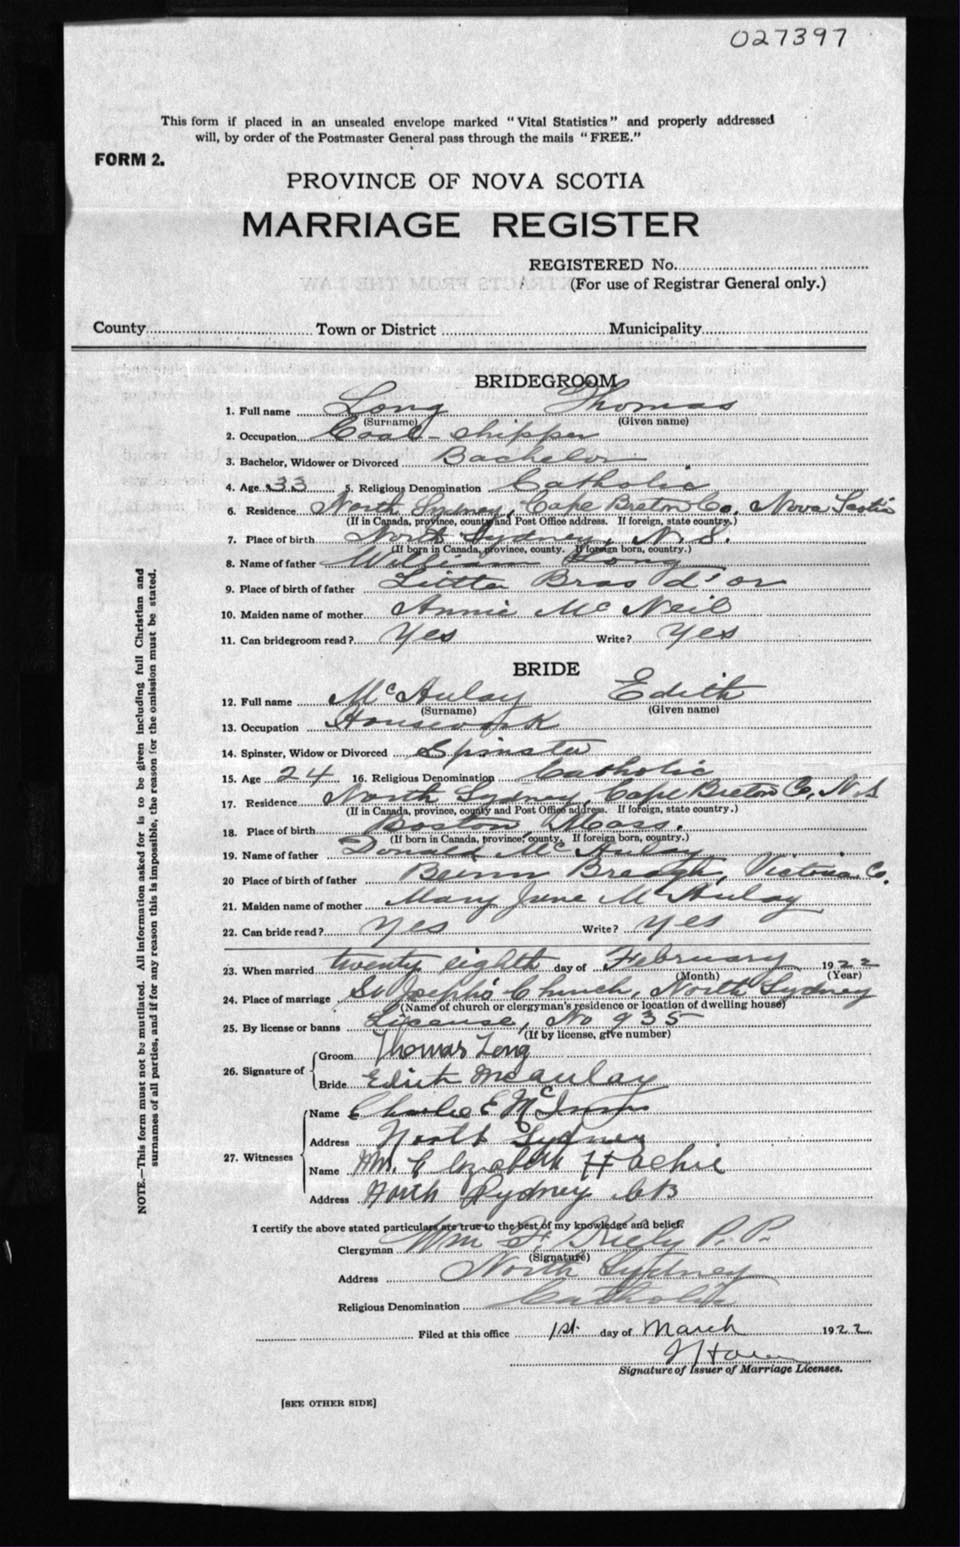 027397
This form if placed in an unsealed envelope marked "Vital Statistics" and properly addressed
will, by order of the Postmaster General pass through the mails "FREE."
FORM 2.
PROVINCE OF NOVA SCOTIA
MARRIAGE REGISTER
REGISTERED No.
(For use of Registrar General only.)
County Town or District Municipality
BRIDEGROOM
1. Full name Long Thomas
(Surname) (Given name)
2. Occupation Coal-shipper
3. Bachelor, Widower or Divorced Bachelor
4. Age 33 5. Religious Denomination Catholic
6. Residence North Sydney, Cape Breton Co. Nova Scotia
(If in Canada, province, county and Post Office address. If foreign, state country.)
7. Place of birth North Sydney, N.S.
(If born in Canada, province, county. If foreign born, country.)
8. Name of father William Long
9. Place of birth of father Little Bras d'or
10. Maiden name of mother Annie McNeil
11. Can bridegroom read? Yes Write? Yes
BRIDE
12. Full name McAulay Edith
(Surname) (Given name)
13. Occupation Housework
14. Spinster, Widow or Divorced Spinster
15. Age 24 16. Religious Denomination Catholic
17. Residence North Sydney, Cape Breton Co, N.S
(If in Canada, province, county and Post Office address. If foreign, state country.)
18. Place of birth Boston, Mass.
(If born in Canada, province, county. If foreign born, country.)
19. Name of father Donald McAulay
20 Place of birth of father Beinn Breagh, Victoria Co.
21. Maiden name of mother Mary Jane McAulay
22. Can bride read? Yes Write? Yes
23. When married twenty eighth day of February 1922
(Month) (Year)
24. Place of marriage St Joseph's Church, North Sydney
(Name of church or clergyman's residence or location of dwelling house)
25. By license or banns License, No 935
(If by license, give number)
26. Signature of Groom Thomas Long
Bride Edith McAulay
27. Witnesses Name Charlie E McInnis
Address North Sydney
Name Elizabeth
Address North Sydney CB
I certify the above stated particulars are true to the best of my knowledge and belief.
Clergyman Wm F. Kiely P.P.
(Signature)
Address North Sydney
Religious Denomination Catholic
Filed at this office 1st. day of March 1922
Signature of Issuer of Marriage Licenses.
[SEE OTHER SIDE]
NOTE.—This form must not be mutilated. All information asked for is to be given including full Christian and
surnames of all parties, and if for any reason this is impossible, the reason for the omission must be stated.